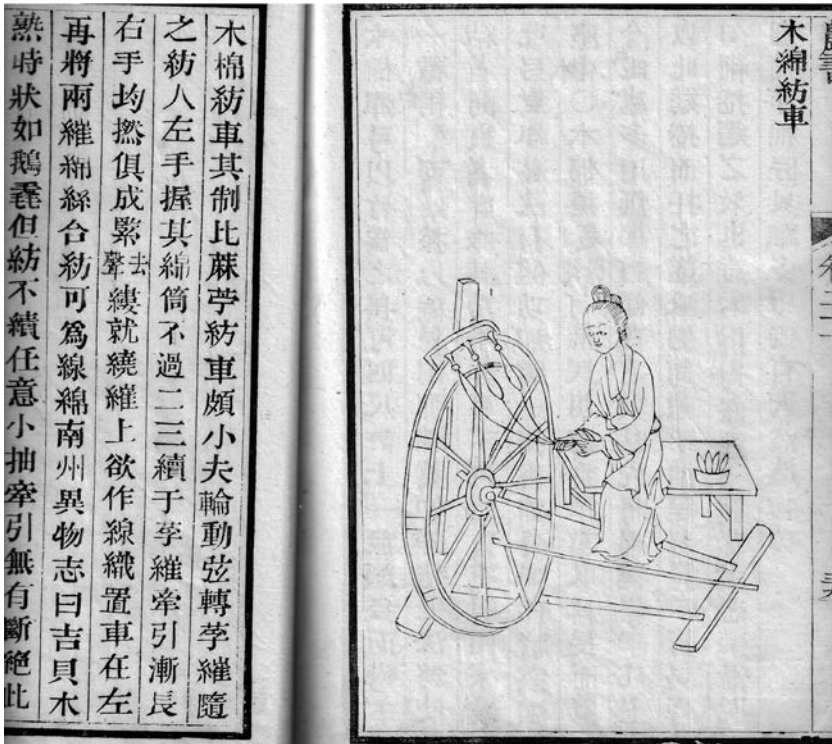 農書
木綿紡車
木棉紡車其制比蔴苧紡車頗小夫輪動弦轉莩繀隨
之紡人左手握其綿筒不過二三續于莩繀牽引漸長
右手均撚俱成緊去聲縷就繞繀上欲作線織置車在左
再將兩繀綿絲合紡可爲線綿南州異物志曰吉貝木
熟時狀如鵝毳但紡不績任意小抽牽引無有斷絕此